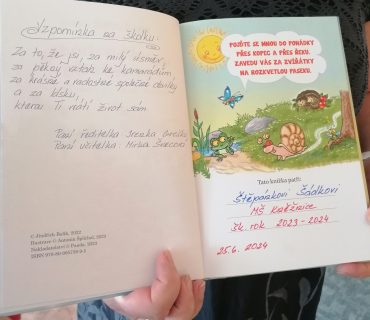 Vzpomínka na školku:
Za to, že jsi, za milý úsměv,
za pěkný vztah ke kamarádům,
za krásné a radostné společné chvilky
a za lásku,
kterou Ti vrátí život sám.
Tvoje ředitelka
Paní učitelka: Mirka
© Jindřich Balík, 2022
Illustrace © Antonín Šplíchal, 2022
POJĎTE SE MNOU DO POHÁDKY
PŘES KOPEC A PŘES ŘEKU.
ZAVEDU VÁS ZA ZVÍŘÁTKY
NA ROZKVETLOU PASEKU.
Tato knížka patří:
Štěpánkovi Šádkovi
MŠ
Šk. rok 2023 - 2024
25.6. 2024